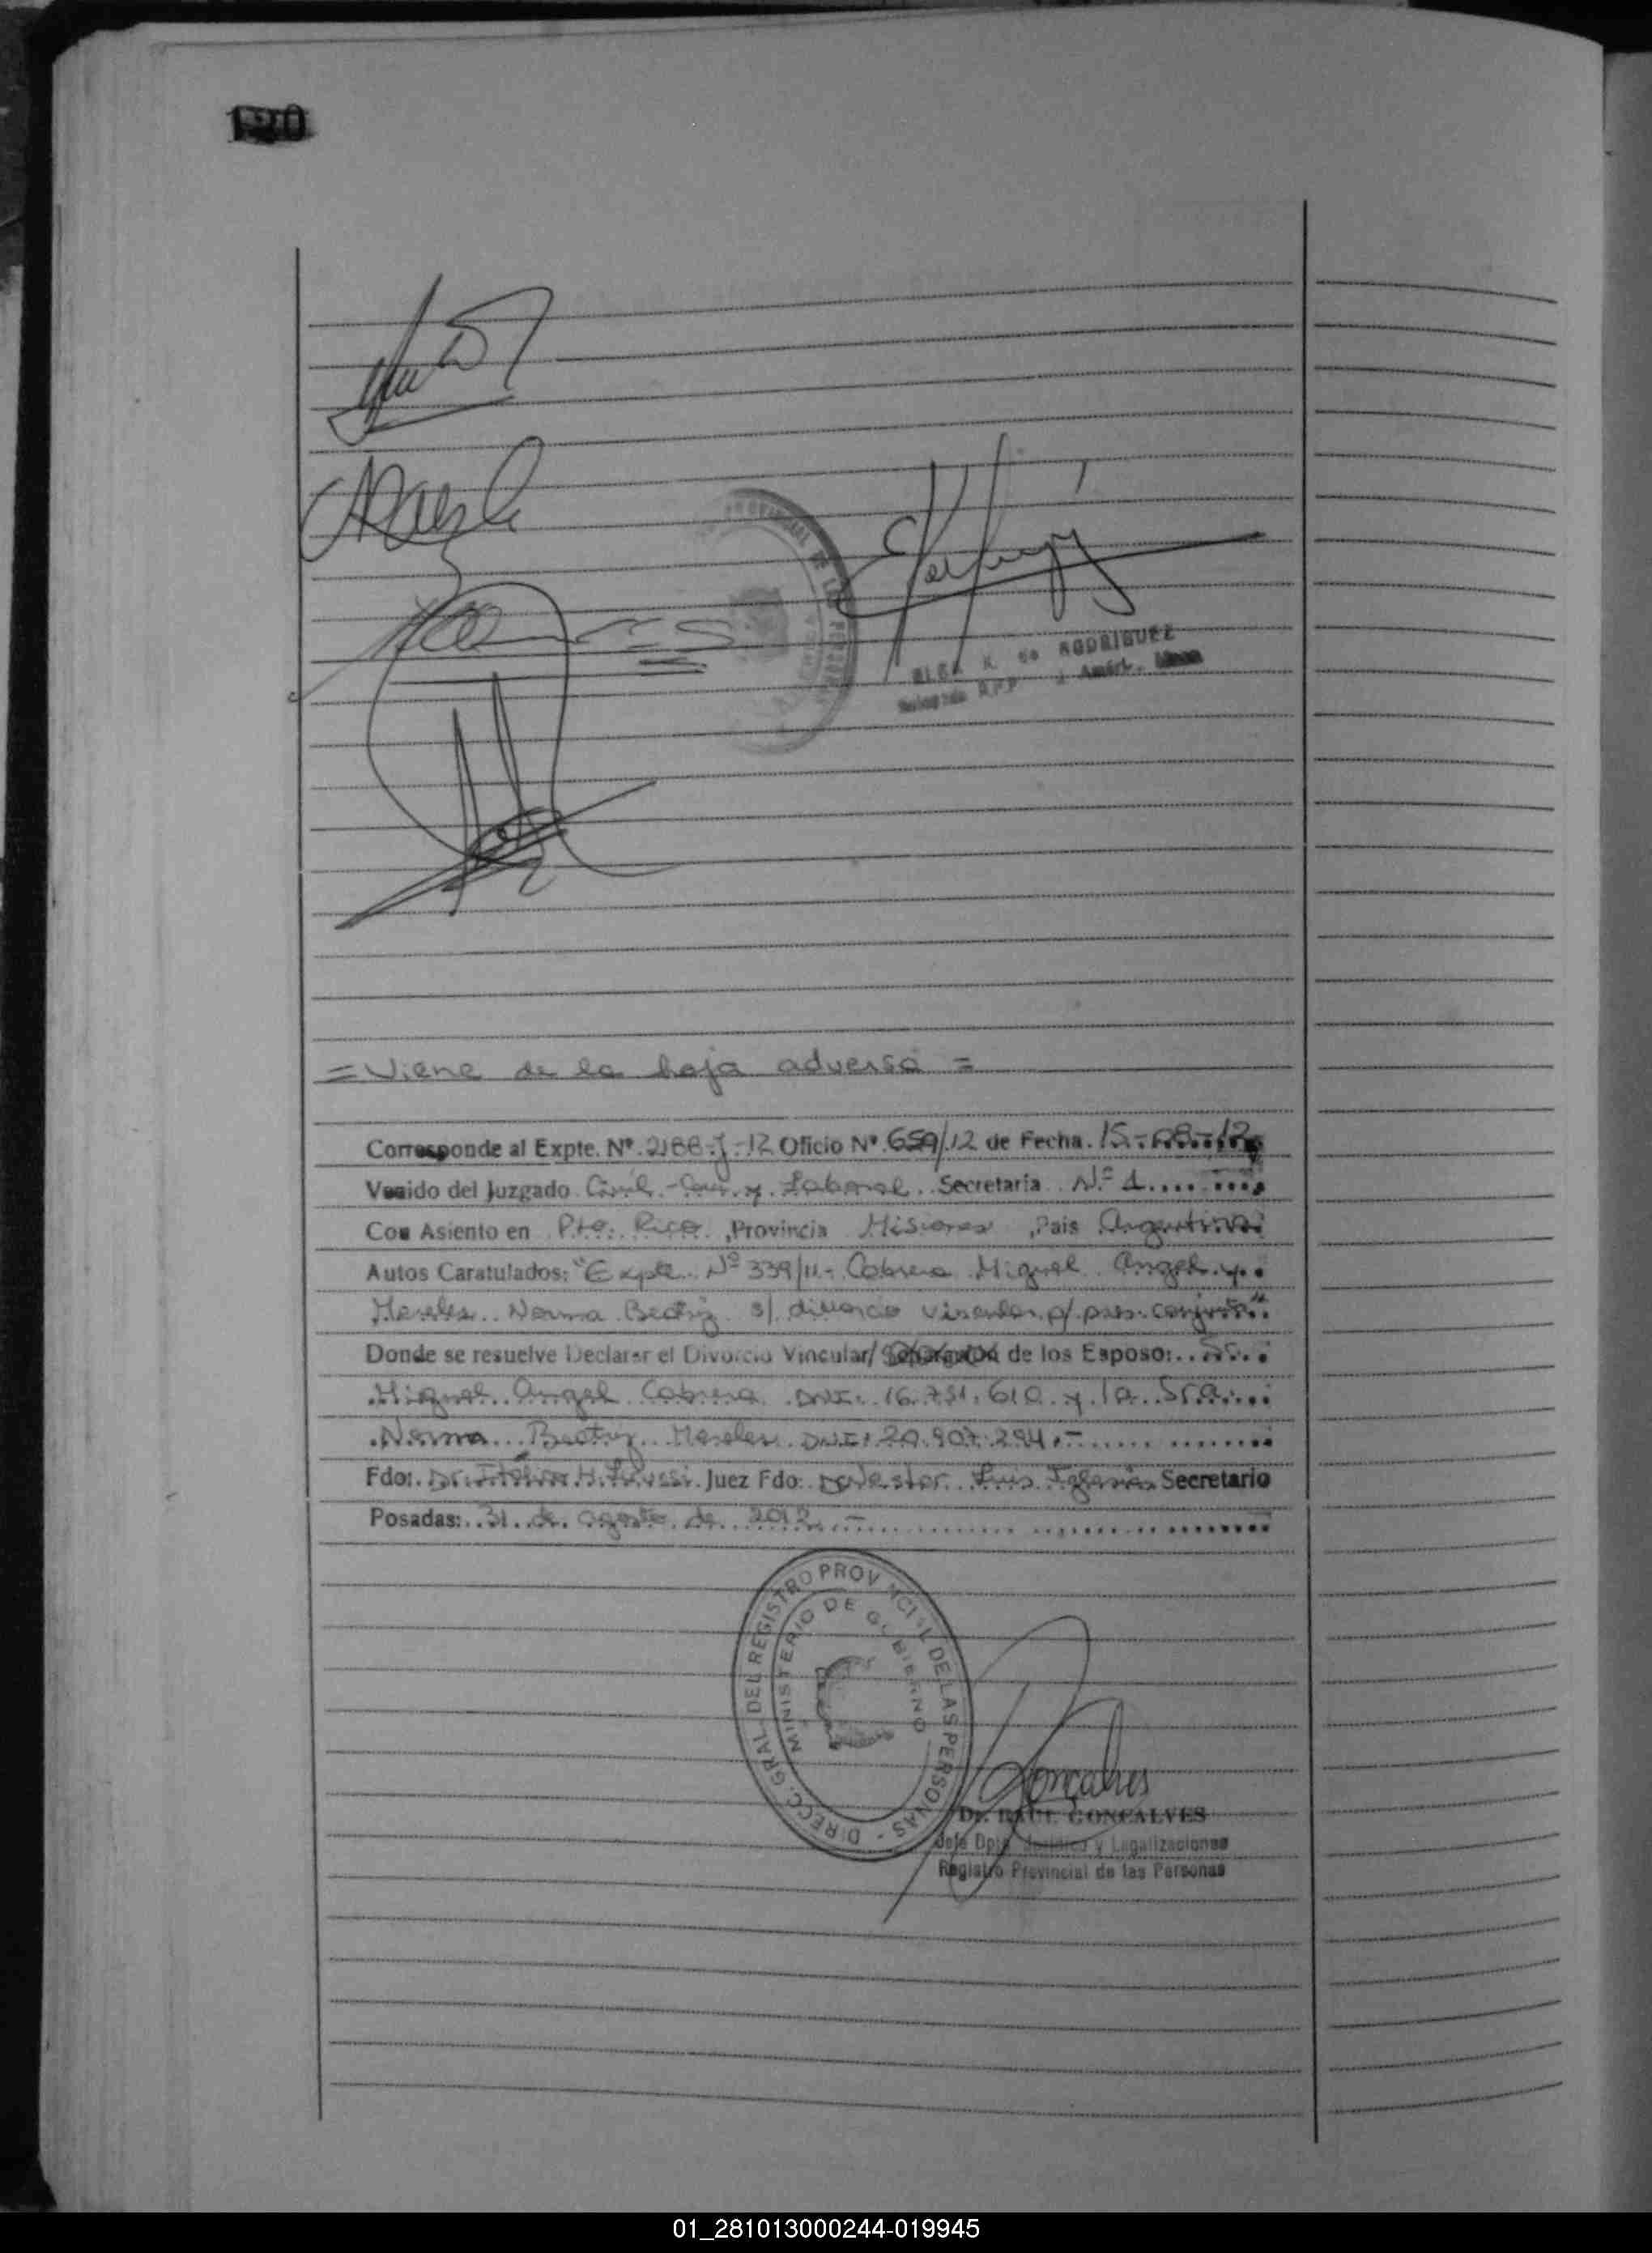 120
ELSA K. de RODRIGUEZ
= Viene de la hoja adversa =
Corresponde al Expte. Nº 2188-J-12 Oficio Nº 659/12 de Fecha 15-08-12
Venido del Juzgado Civil - Com. y Laboral Secretaria Nº 1
Con Asiento en Pto. Rico, Provincia Misiones, Pais Argentina
Autos Caratulados: "Expte. Nº 339/11 - Cabrera Miguel Angel y
Meneles Norma Beatriz s/ divorcio vincular p/ pres. conjunta"
Donde se resuelve Declarar el Divorcio Vincular/ Separación de los Esposo: Sr.
Miguel Angel Cabrera DNI: 16.751.610 y la Sra.
Norma Beatriz Meneles DNI: 20.907.294.-
Fdo: Dr. H. Juez Fdo: Dr. Nestor Luis Iglesias Secretario
Posadas: 31 de agosto de 2012.-
DIRECC. GRAL. DEL REGISTRO PROVINCIAL DE LAS PERSONAS -
MINISTERIO DE GOBIERNO
Goncalves
Dr. RAUL GONCALVES
Jefe Dpto. Jurídico y Legalizaciones
Registro Provincial de las Personas
01_281013000244-019945